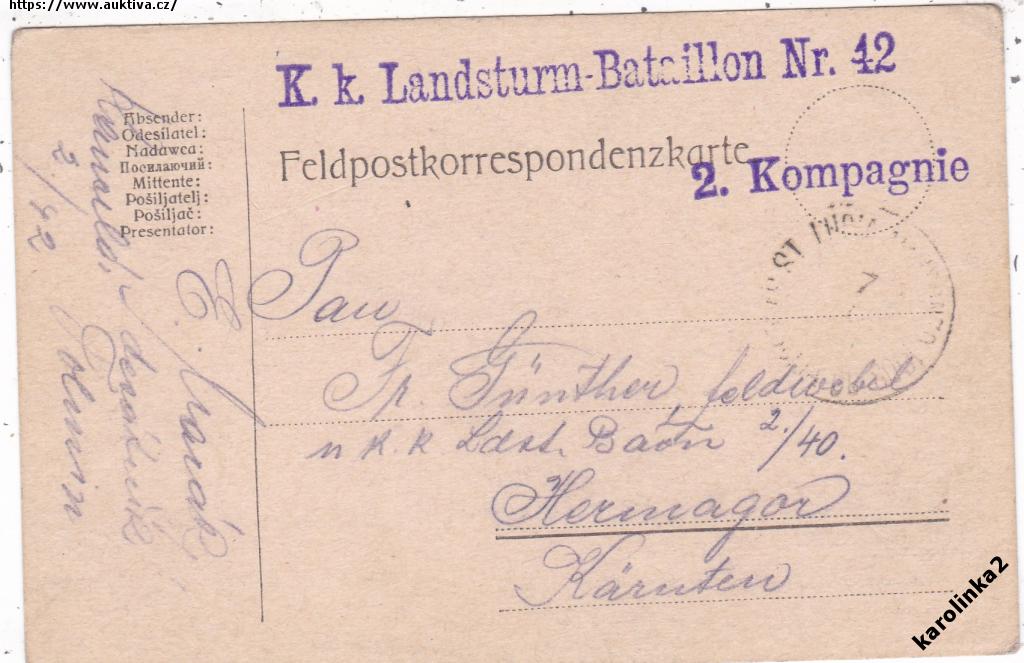 https://www.auktiva.cz/
K. k. Landsturm-Bataillon Nr. 42
2. Kompagnie
Feldpostkorrespondenzkarte
Absender:
Odesílatel:
Nadawca:
Посилаючий:
Mittente:
Pošiljatelj:
Pošiljač:
Presentator:
E.
2./42
Tolmin
7
Pan
Fr. Günther, feldwebel
u k. k. Ldst. Baon 2./40.
Hermagor
Kärnten
karolinka2